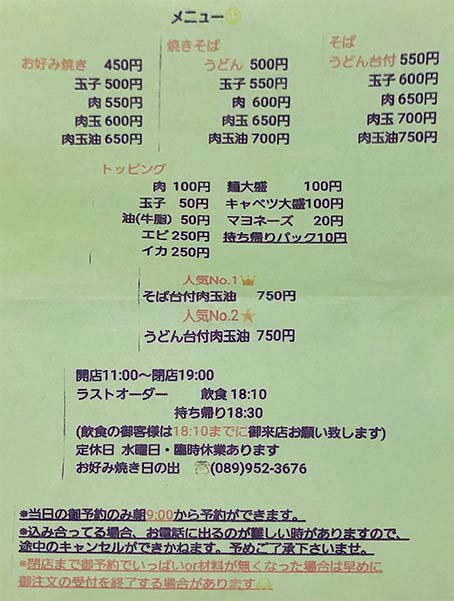 メニュー
お好み焼き 450円
玉子 500円
肉 550円
肉玉 600円
肉玉油 650円
焼きそば
うどん 500円
玉子 550円
肉 600円
肉玉 650円
肉玉油 700円
そば
うどん台付 550円
玉子 600円
肉 650円
肉玉 700円
肉玉油750円
トッピング
肉 100円 麺大盛 100円
玉子 50円 キャベツ大盛100円
油(牛脂) 50円 マヨネーズ 20円
エビ 250円 持ち帰りパック10円
イカ 250円
人気No.1
そば台付肉玉油 750円
人気No.2
うどん台付肉玉油 750円
開店11:00〜閉店19:00
ラストオーダー 飲食 18:10
持ち帰り18:30
(飲食の御客様は18:10までに御来店お願い致します)
定休日 水曜日・臨時休業あります
お好み焼き日の出 ☎(089)952-3676
※当日の御予約のみ朝9:00から予約ができます。
※込み合ってる場合、お電話に出るのが難しい時がありますので、
途中のキャンセルができかねます。予めご了承下さいませ。
※閉店まで御予約でいっぱいor材料が無くなった場合は早めに
御注文の受付を終了する場合があります